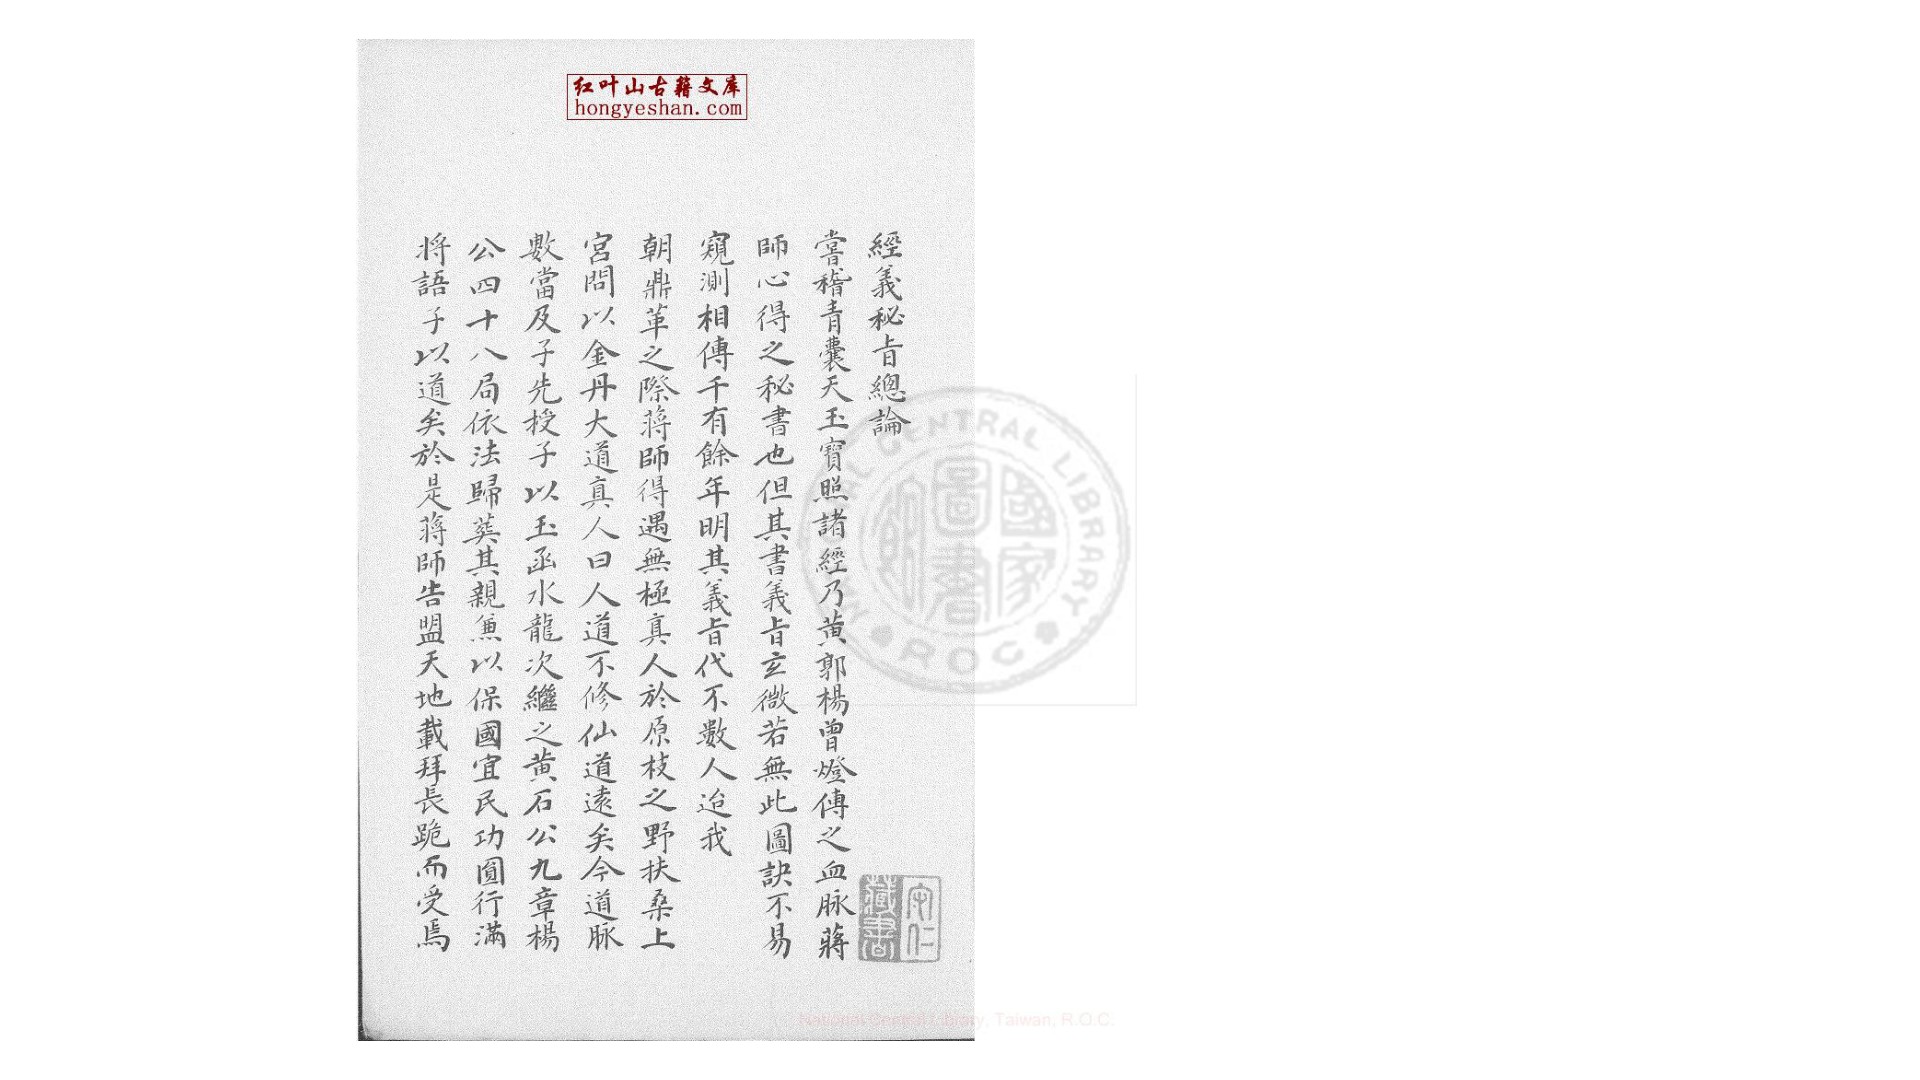 红叶山古籍文库
hongyeshan.com
經義秘旨總論
嘗稽青囊天玉寶照諸經乃黄郭楊曾燈傳之血脉蔣
師心得之秘書也但其書義旨玄微若無此圖訣不易
窺測相傳千有餘年明其義旨代不數人迨我
朝鼎革之際蔣師得遇無極真人於原枝之野扶桑上
宮問以金丹大道真人曰人道不修仙道遠矣今道脉
數當及子先授子以玉函水龍次繼之黄石公九章楊
公四十八局依法歸葬其親兼以保國宜民功圓行滿
将語子以道矣於是蔣師告盟天地載拜長跪而受焉
守仁
藏書
國家圖書館
NATIONAL CENTRAL LIBRARY
ROC
National Central Library, Taiwan, R.O.C.